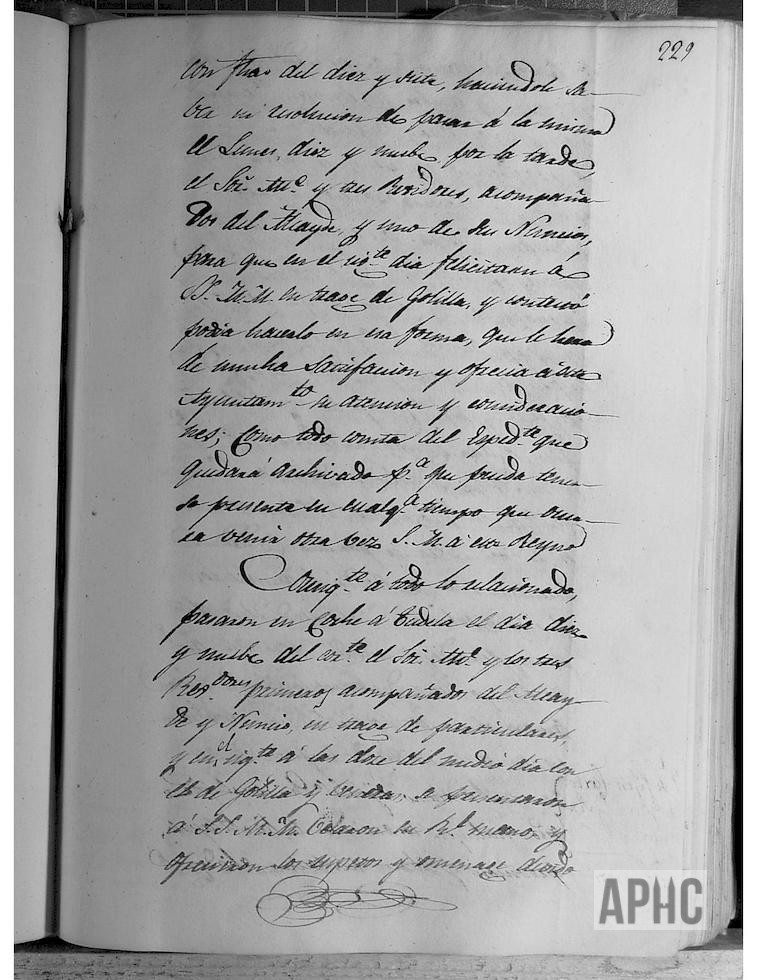 229
con fha del diez y siete, haciendole sa-
ber su resolucion de pasar á la misma
el Lunes, diez y nuebe por la tarde,
el Sor. Alc.e y tres Regidores, acompaña-
dos del Alcayde, y uno de sus Nuncios,
para que en el sig.te dia felicitasen á
SS. M.M. en trage de Golilla, y contextó
podia hacerlo en esa forma, que le hera
de mucha Sacifacion y ofrecia á este
Ayuntam.to su atencion y consideracio-
nes; Como todo consta del Exped.te que
Quedará Archivado p.a que pueda tener-
se presente en cualq.a tiempo que ocur-
ra venir otra vez S. M. á este Reyno
Consig.te á todo lo relacionado,
pasaron en Coche á Tudela el dia diez
y nuebe del cor.te el Sor. Alc.e y los tres
Reg.dores primeros acompañados del Alcay-
de y Nuncio, en trage de particulares,
y en el sig.te á las doce del medio dia con
el de Golilla y veneras, se presentaron
á S.S. M.M. besaron su R.l mano, y
ofrecieron los respetos y omenage
APHC